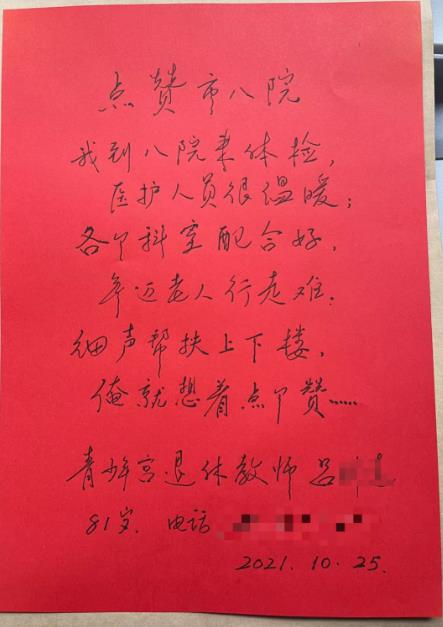 点赞市八院
我到八院来体检，
医护人员很温暖；
各个科室配合好，
年迈老人行走难；
细声帮扶上下楼，
俺就想着点个赞……
青少年宫退休教师 吕
81岁. 电话
2021.10.25.